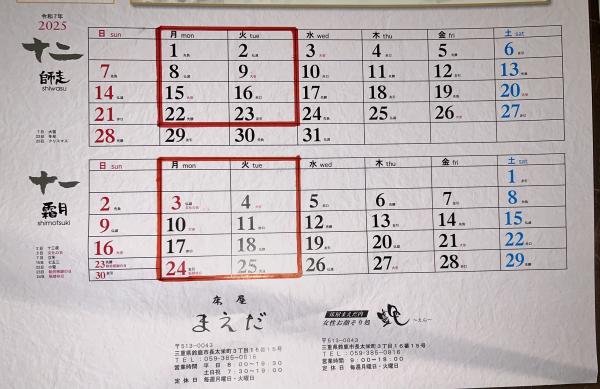 令和7年
2025
十二
師走
shiwasu
日 sun 月 mon 火 tue 水 wed 木 thu 金 fri 土 sat
1 2 3 4 5 6
7 8 9 10 11 12 13
14 15 16 17 18 19 20
21 22 23 24 25 26 27
28 29 30 31
7日 大雪
22日 冬至
25日 クリスマス
十一
霜月
shimotsuki
日 sun 月 mon 火 tue 水 wed 木 thu 金 fri 土 sat
1
2 3 4 5 6 7 8
9 10 11 12 13 14 15
16 17 18 19 20 21 22
23 24 25 26 27 28 29
30
3日 文化の日
7日 立冬
15日 七五三
22日 小雪
23日 勤労感謝の日
24日 振替休日
床屋
まえだ
〒513-0043
三重県鈴鹿市長太栄町3丁目16番15号
TEL:059-385-0816
営業時間 平日 8:00~18:30
土日祝 7:30~19:00
定休日 毎週月曜日・火曜日
床屋まえだ内
女性お顔そり処
〒513-0043
三重県鈴鹿市長太栄町3丁目16番15号
TEL:059-385-0816
営業時間 9:00~18:00
定休日 毎週月曜日・火曜日